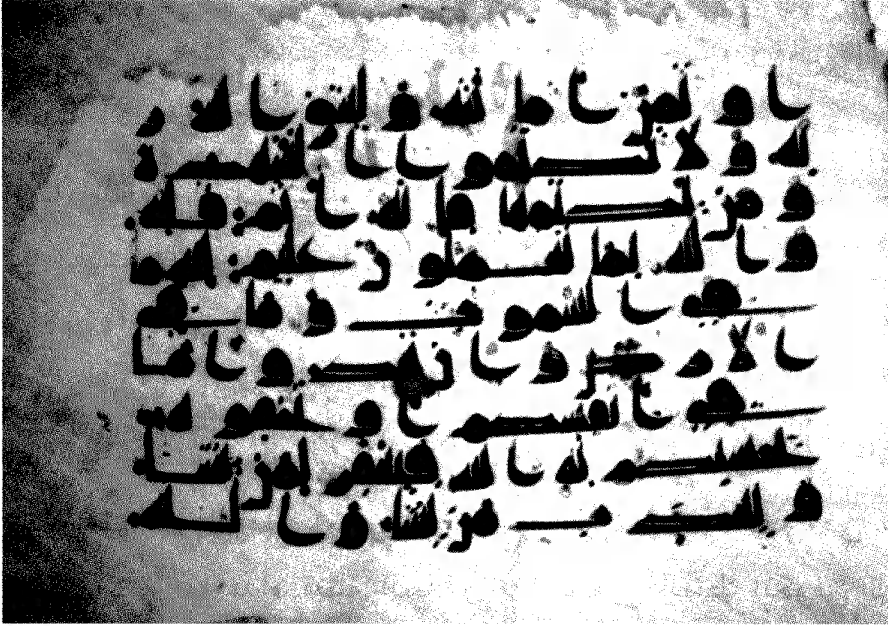 اوتمن امنته وليتق الله ر
به ولا تكتموا الشهدة
ومن يكتمها فانه اثم قلبه
والله بما تعملون عليم لله ما
فى السموت وما فى
الارض وان تبدوا ما
فى انفسكم او تخفوه يحا
سبكم به الله فيغفر لمن يشا
ويعذب من يشا والله